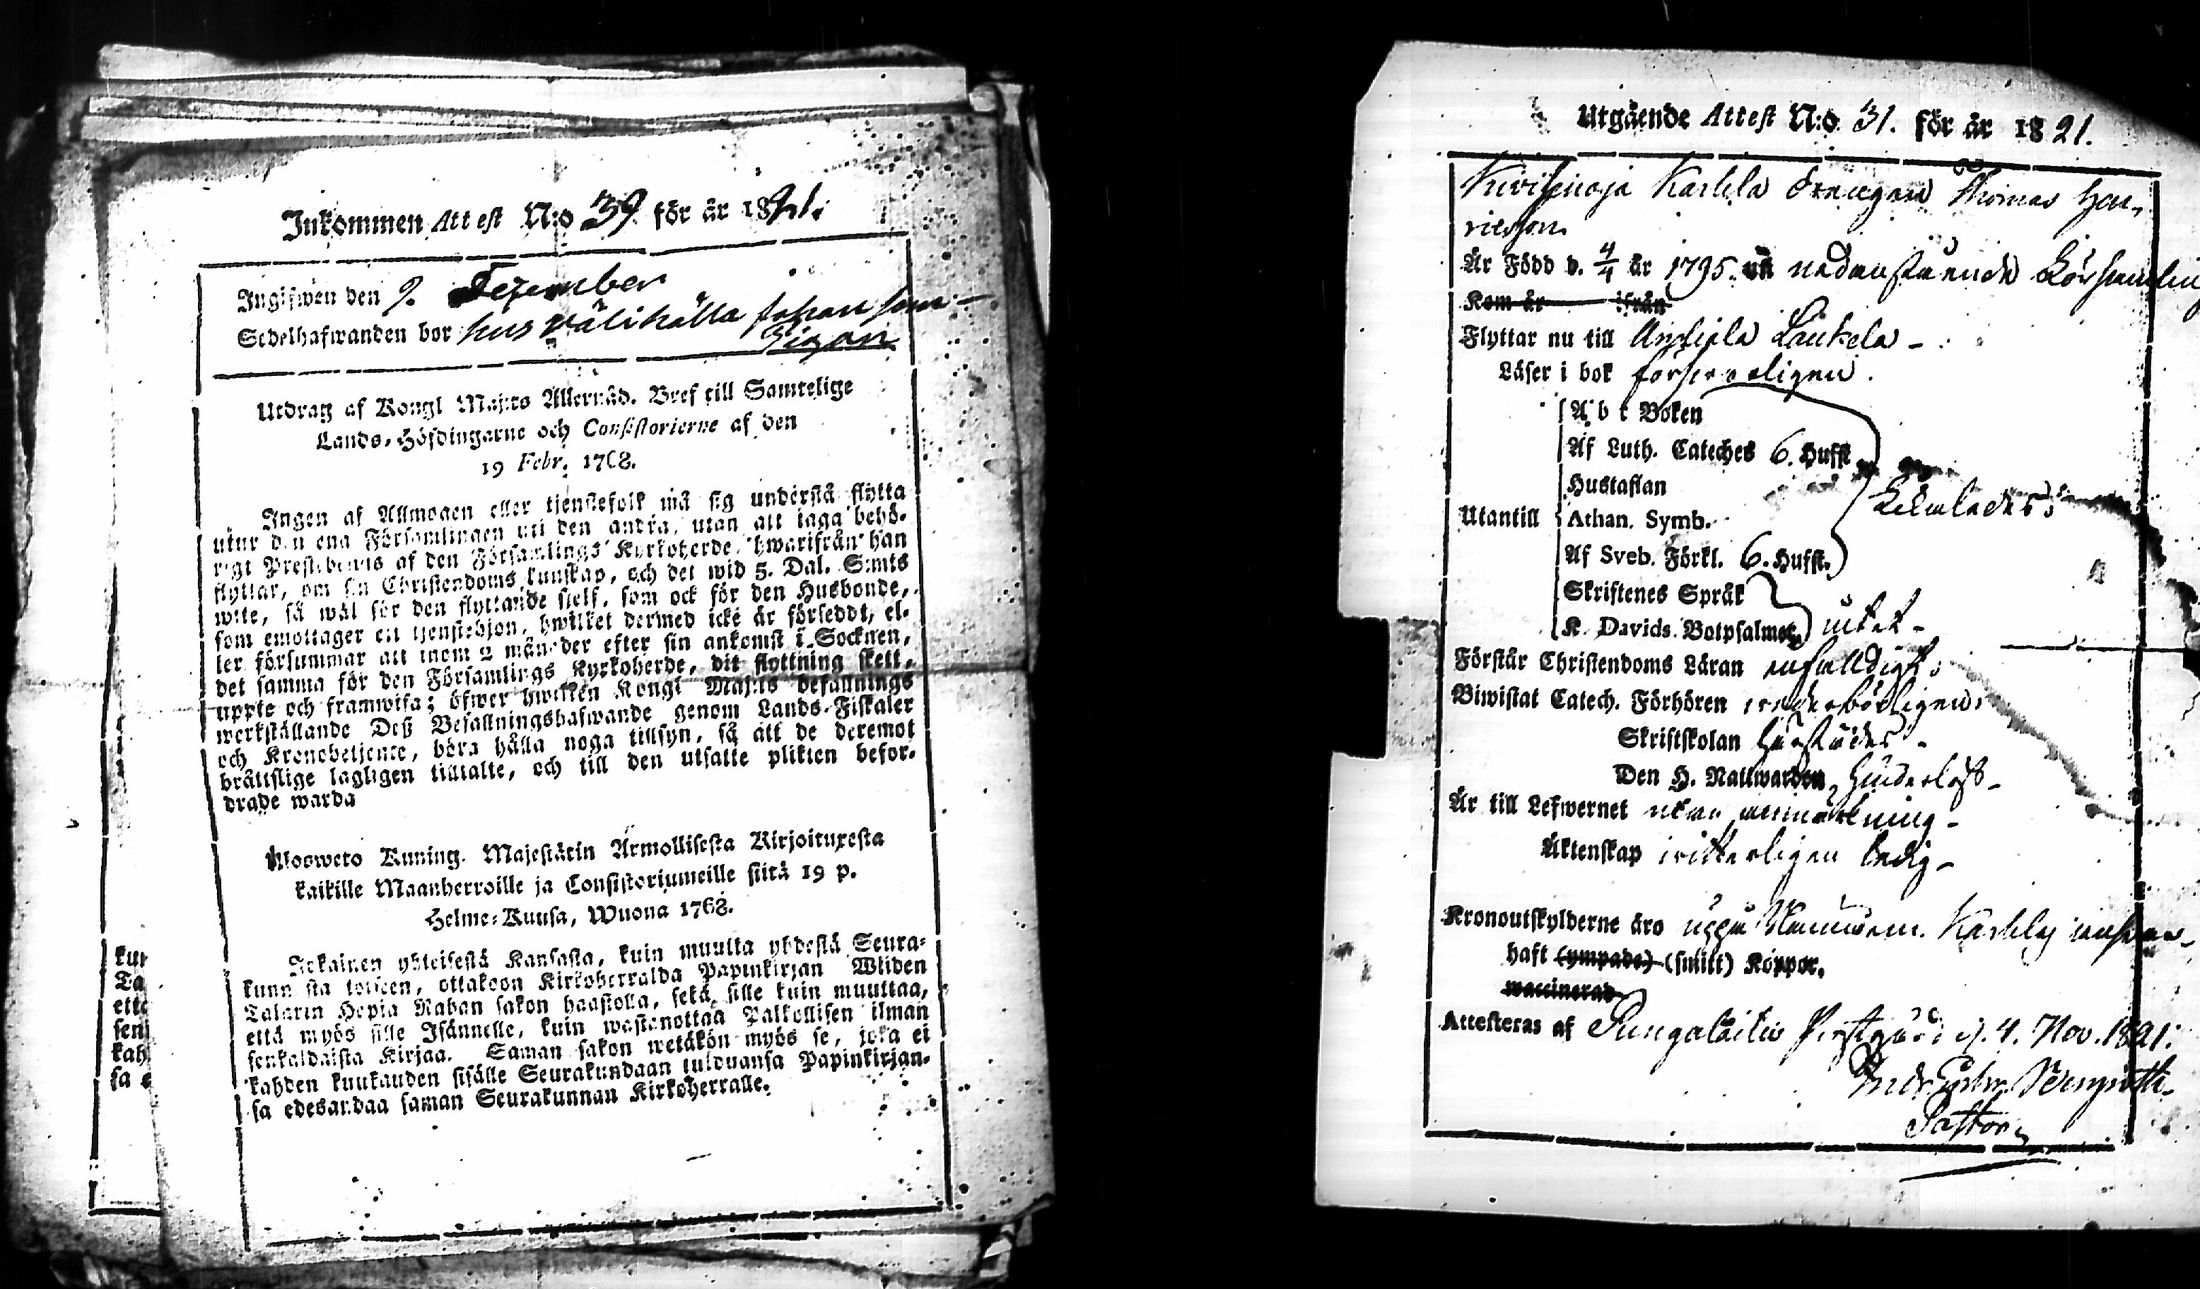 Inkommen Attest N:o 39 för år 1821.
Ingifwen den 9. Dezember
Sedelhafwanden bor hos Välihälla Johan som
Utdrag af Kongl Maj:ts Allernåd. Bref till Samtelige
Lands-Höfdingarne och Consistorierne af den
19 Febr. 1768.
Ingen af Allmogen eller tjenstefolk må sig understå flytta
utur den ena Församlingen uti den andra, utan att taga behö-
rigt Prestebewis af den Församlings Kyrkoherde, hwarifrån han
flyttar, om sin Christendoms kunskap, och det wid 5. Dal. S:mts
wite, så wäl för den flyttande sjelf, som ock för den Husbonde,
som emottager ett tjenstehjon, hwilket dermed icke är försedt, el-
ler försummar att inom 2 månader efter sin ankomst i Socknen,
det samma för den Församlings Kyrkoherde, dit flyttning skett,
uppte och framwisa; öfwer hwilken Kongl Maj:ts befallnings
werkställande Deß Befallningshafwande genom Lands-Fiskaler
och Kronobetjente, böra hålla noga tillsyn, så att de deremot
bråttslige lagligen tilltalte, och till den utsatte plikten befor-
drade warda
Ulosweto Kuning. Majestätin Armollisesta Kirjoituxesta
kaikille Maanherroille ja Consistoriumeille siitä 19 p.
Helme-Kuusa, Wuona 1768.
Jokainen yhteisestä Kansasta, kuin muutta yhdestä Seura-
kunnasta toiseen, ottakoon Kirkoherralda Papinkirjan Wiiden
Talarin Hopia Rahan sakon haastolla, sekä sille kuin muuttaa,
että myös sille Isännelle, kuin wastanottaa Palkollisen ilman
senkaldaista Kirjaa. Saman sakon wetäkön myös se, joka ei
kahden kuukauden sisälle Seurakundaan tulduansa Papinkirjan-
sa edesandaa saman Seurakunnan Kirkoherralle.
kun
Ta
että
sen
kah
sa e
Utgående Attest N:o 31. för år 1821.
Karhila Drengen Thomas Hen-
ricsson
Är Född d. 4/4 år 1795. nedanstående Församling
Kom är ifrån
Flyttar nu till Anttola Laukela
Läser i bok försvarligen.
A b c Boken
Af Luth. Cateches 6. Hufst
Hustaflan
Utantill Athan. Symb.
Af Sveb. Förkl. 6. Hufst.
Skriftenes Språk
K. Davids Botpsalmer intet
Förstår Christendoms Läran enfalldigt
Biwistat Catech. Förhören wederbörligen
Skriftskolan härstädes
Den H. Nattwarden hinderlöst
Är till Lefwernet utan anmärkning
Äktenskap witterligen ledig
Kronoutskylderne äro
haft (ympade) (smitt) Koppor.
waccinerad
Attesteras af Pungalaitio Prestgård d. 4. Nov. 1821.
Pastor